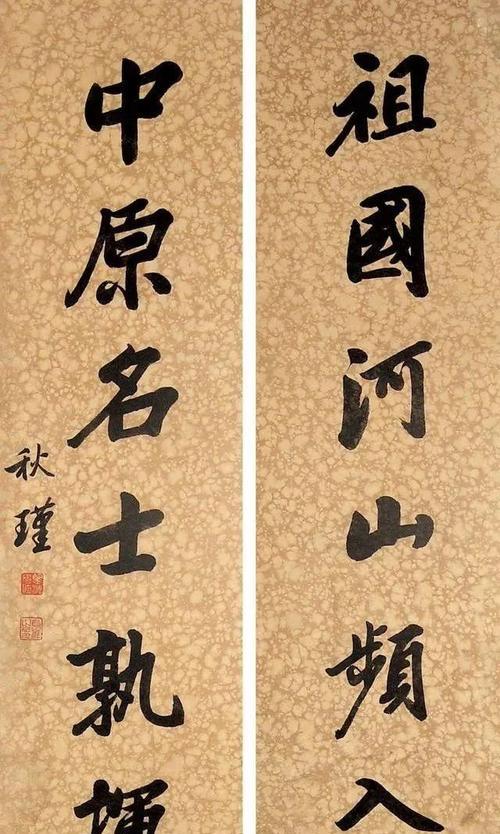 祖國河山頻入
中原名士孰揮
秋瑾